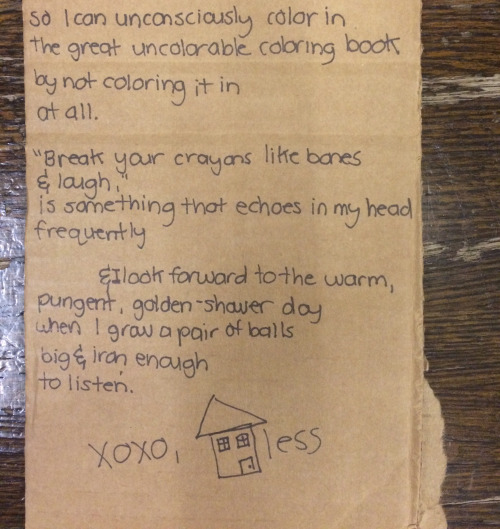 so I can unconsciously color in
the great uncolorable coloring book
by not coloring it in
at all.
"Break your crayons like bones
& laugh,"
is something that echoes in my head
frequently
& I look forward to the warm,
pungent, golden-shower day
when I grow a pair of balls
big & iron enough
to listen.
xoxo, less